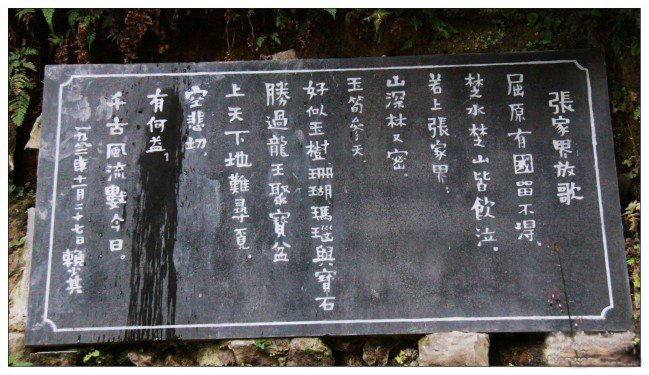 張家界放歌
屈原有國留不得、
楚水楚山皆飲泣。
若上張家界,
山深林又密.
玉筍參天.
好似玉樹珊瑚瑪瑙與寶石
勝過龍王聚寶盆
上天下地難尋覓。
空悲切,
有何益,
千古風流數今日。
一九八三年十一月二十七日 賴少其